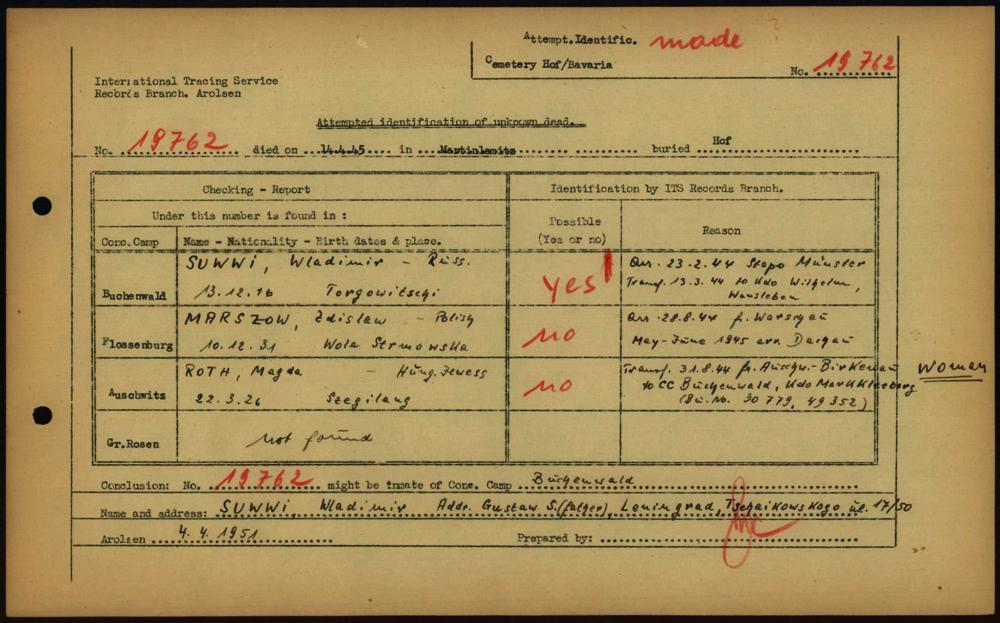 Attempt.Identific. made ?
Cemetery Hof/Bavaria
No. 19 762
International Tracing Service
Records Branch. Arolsen
Attempted identification of unknown dead.
No. 19762 died on 14.4.45 in Martinlamitz buried Hof
Checking - Report
Identification by ITS Records Branch.
Under this number is found in :
Possible
(Yes or no)
Reason
Conc.Camp
Name - Nationality - Birth dates & place.
SUWWI, Wladimir - Russ.
Buchenwald
13.12.16 Torgowitschi
yes
Arr. 23.2.44 Stapo Münster
Transf. 13.3.44 to Kdo Wilhelm,
Wansleben
MARSZOW, Zdislaw - Polish
Flossenburg
10.12.31 Wola Srmowska
no
Arr. 28.8.44 f. Warschau
May-June 1945 arr. Dachau
ROTH, Magda - Hung. Jewess
Auschwitz
22.3.26 Szegilang
no
Transf. 31.8.44 fr. Auschw.-Birkenau
to CC Buchenwald, Kdo Markkleeberg
(Bu.No. 30 779, 49 352)
woman
Gr.Rosen
not found
Conclusion: No. 19762 might be inmate of Conc. Camp Buchenwald
Name and address: SUWWI, Wladimir Addr. Gustaw S.(father), Leningrad, Tschaikowskogo ul. 17/50
Arolsen 4.4.1951
Prepared by: